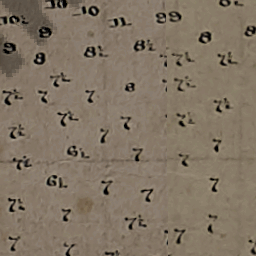 10 10 11 99
10½ 8
9 8 8½ 8½ 8 8
7½ 7½ 7½
7½ 7 7 8 7½
7½ 7 7½ 7½
7½ 7 7
7½ 6½ 7 7
6½ 7 7 7
7½ 7 7½ 7
7 7 7